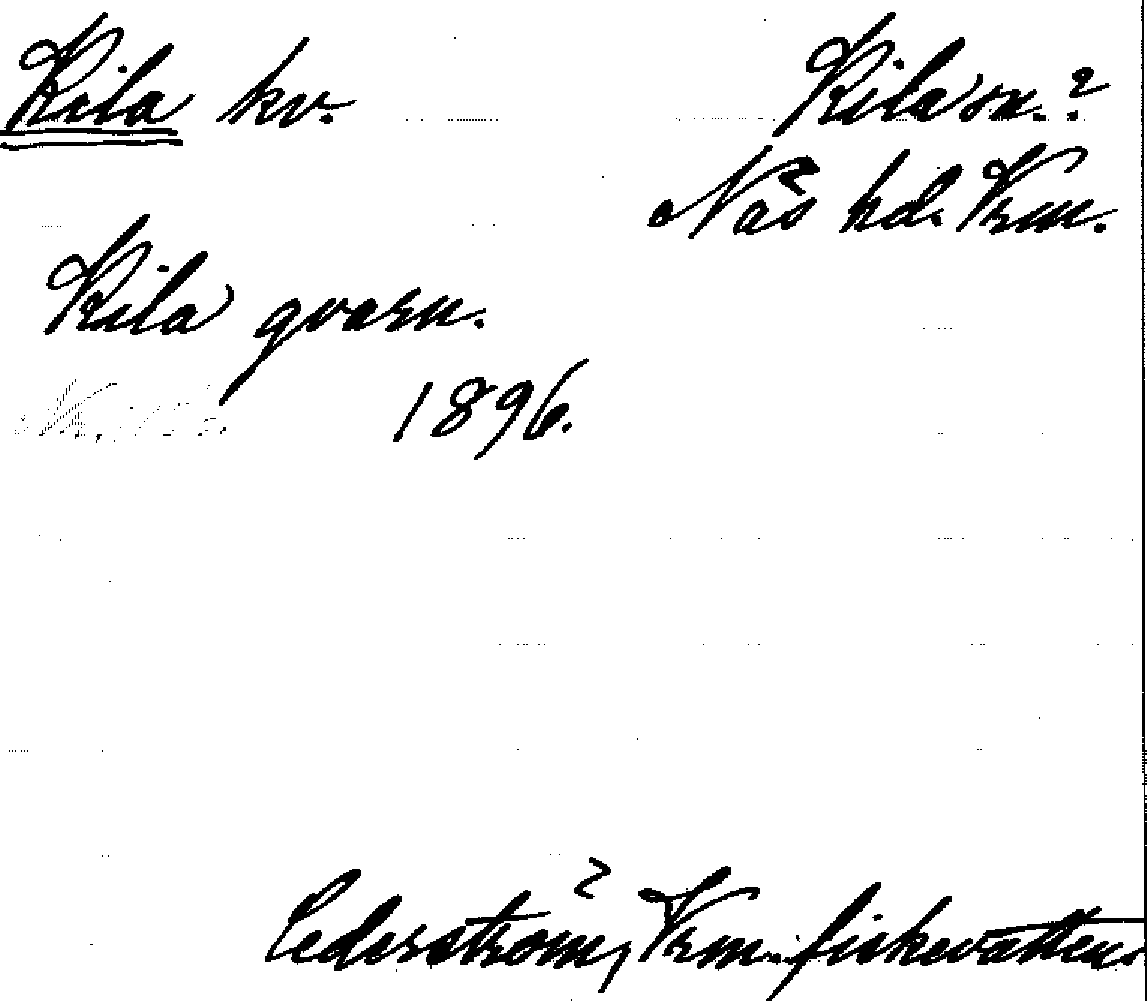 Kila kv. Kila sn.?
Näs hd. Vrm.
Kila qvarn.
1896.
Cederström, Vrm. fiskevattens